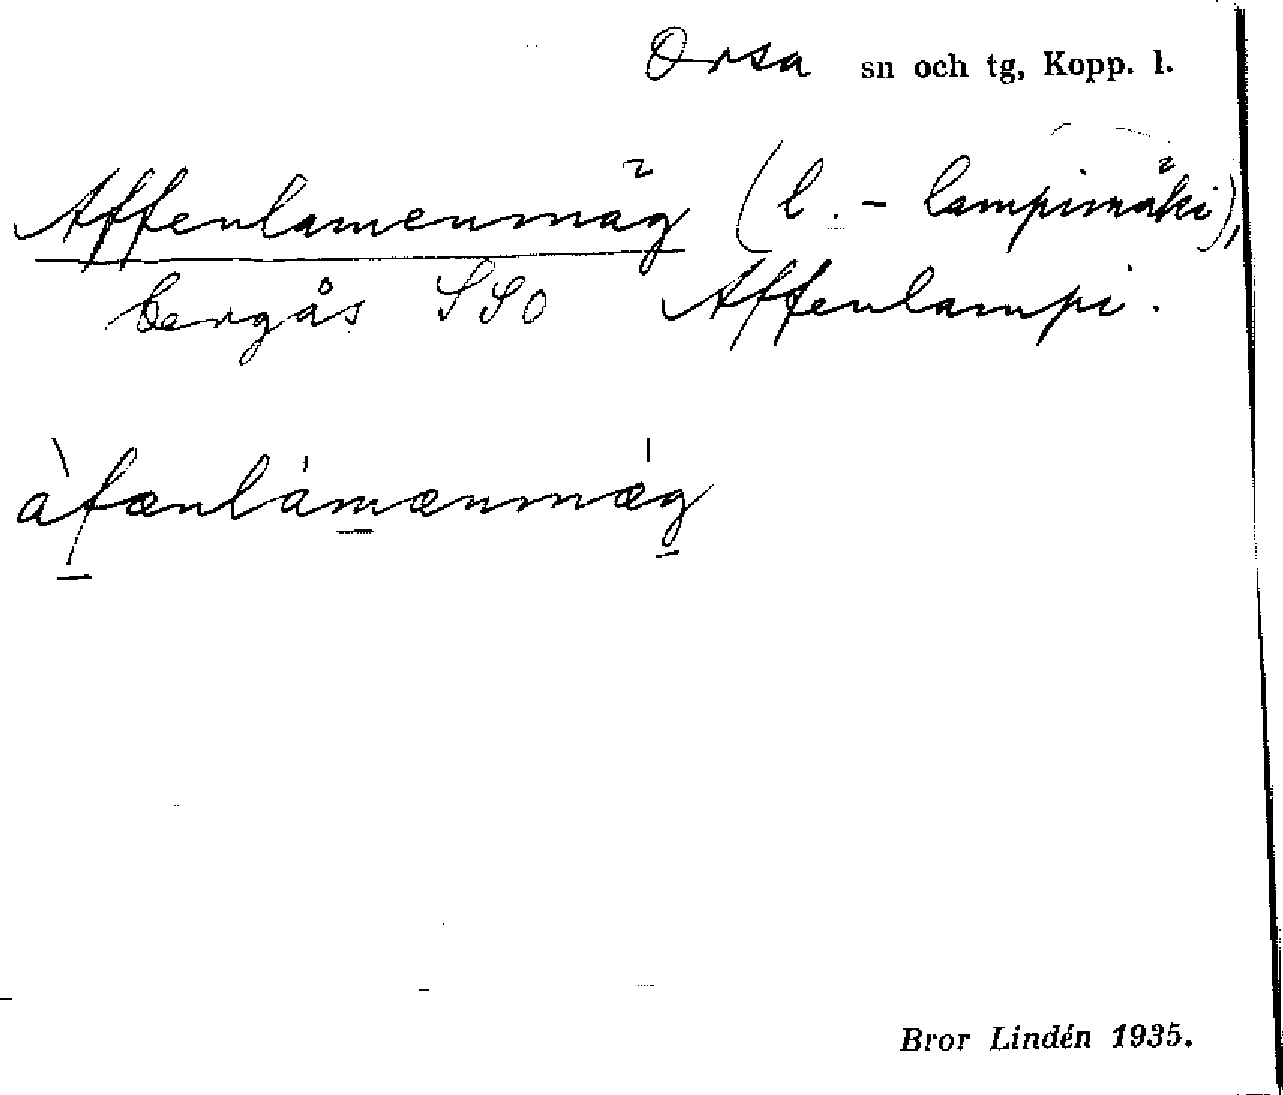 Orsa sn och tg, Kopp. l.
Affenlamenmäg (l. - lampimäki),
bergås SSO Affenlampi.
àfænlámænmæg
Bror Lindén 1935.